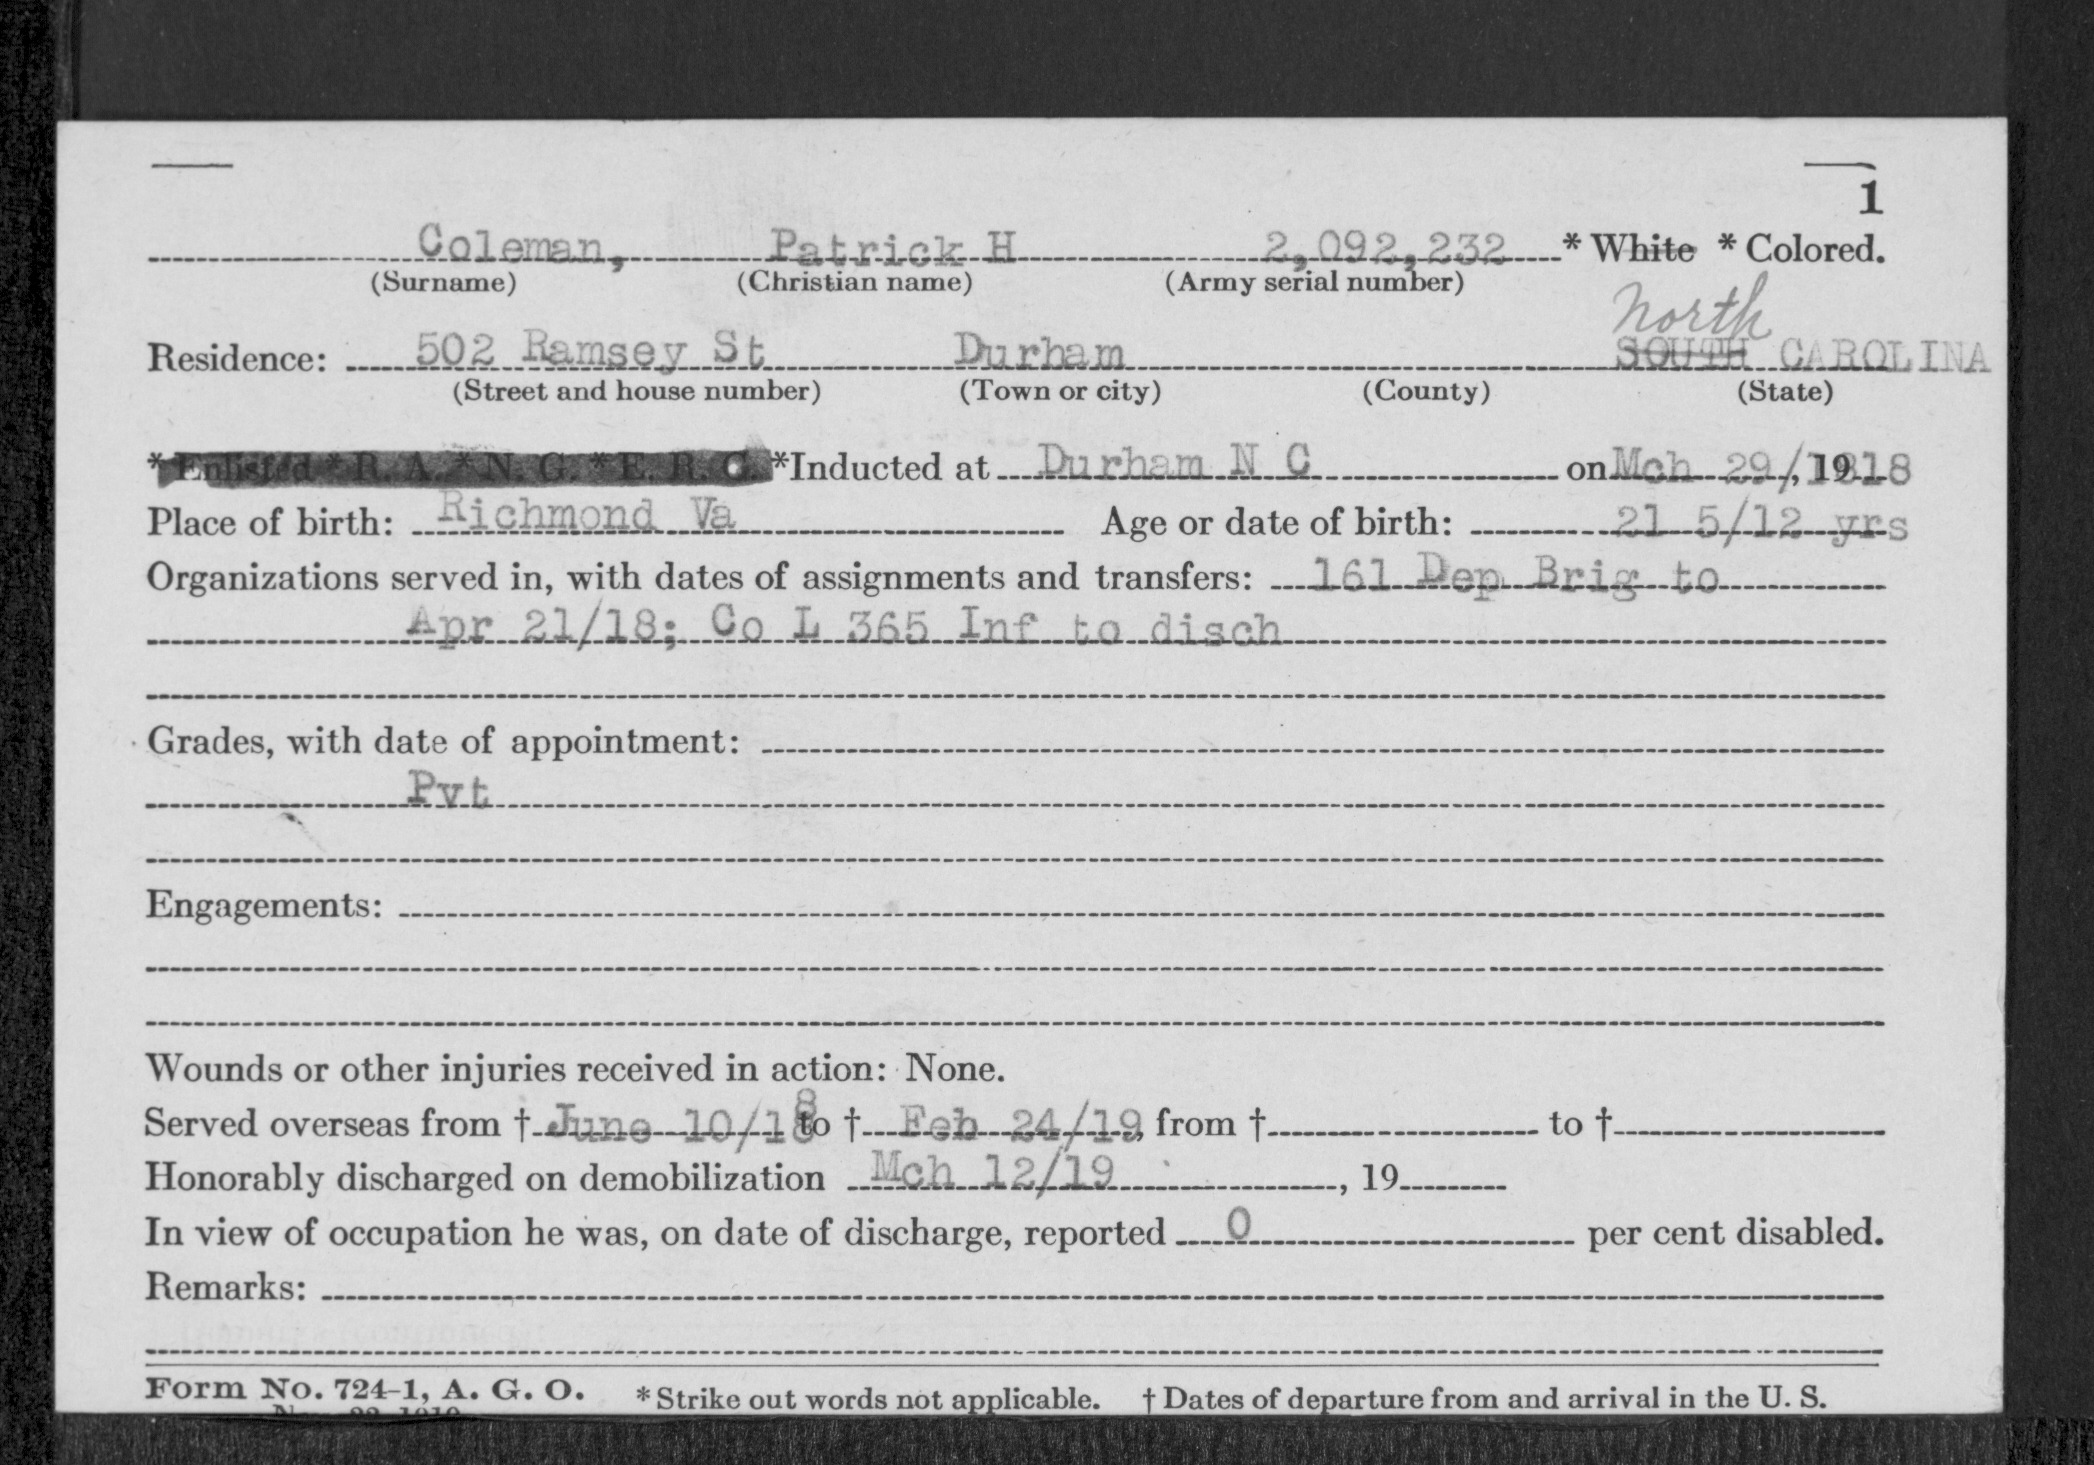 1
Coleman, Patrick H 2,092,232 * White * Colored.
(Surname) (Christian name) (Army serial number)
North
Residence: 502 Ramsey St Durham SOUTH CAROLINA
(Street and house number) (Town or city) (County) (State)
* Enlisted * R. A. * N. G. * E. R. C. *Inducted at Durham N C on Mch 29/1818, 19
Place of birth: Richmond Va Age or date of birth: 21 5/12 yrs
Organizations served in, with dates of assignments and transfers: 161 Dep Brig to
Apr 21/18; Co L 365 Inf to disch
Grades, with date of appointment:
Pvt
Engagements:
Wounds or other injuries received in action: None.
Served overseas from † June 10/18 to † Feb 24/19, from † to †
Honorably discharged on demobilization Mch 12/19, 19
In view of occupation he was, on date of discharge, reported 0 per cent disabled.
Remarks:
Form No. 724-1, A. G. O. * Strike out words not applicable. † Dates of departure from and arrival in the U. S.